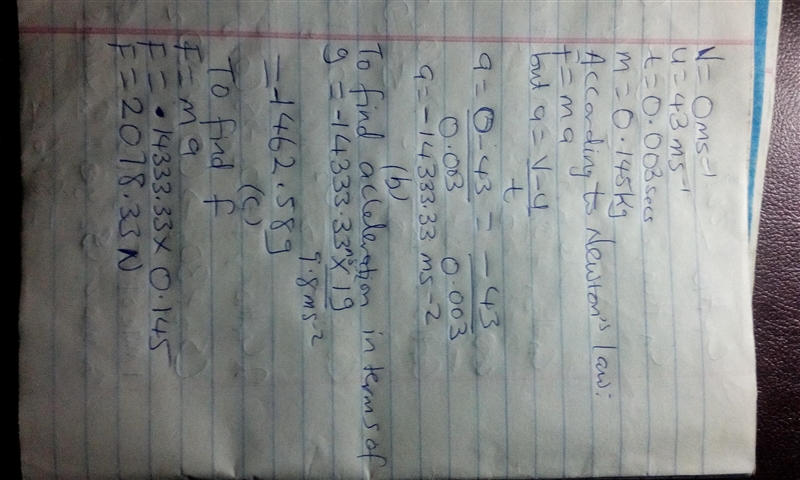 V = 0ms-1
u = 43 ms-1
t = 0.003secs
m = 0.145kg
According to Newton's law:
F = ma
but a = V-u
t
a = 0-43 = -43
0.003 0.003
a = -14333.33 ms-2
(b)
To find acceleration in terms of
g = -14333.33ms-2 x 1g
9.8ms-2
= -1462.58g
(c)
To find f
F = ma
F = 14333.33 x 0.145
F = 2078.33 N